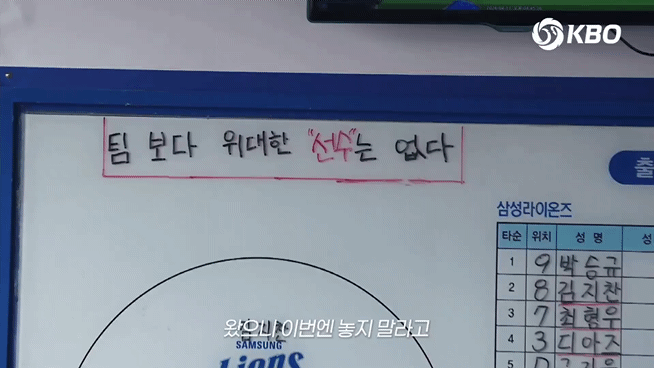 KBO
팀 보다 위대한 "선수"는 없다
출
삼성라이온즈
타순 위치 성명 성
1 9 박승규
2 8 김지찬
3 7 최형우
4 3 디아즈
5
SAMSUNG
Lions
왔으니 이번엔 놓지 말라고